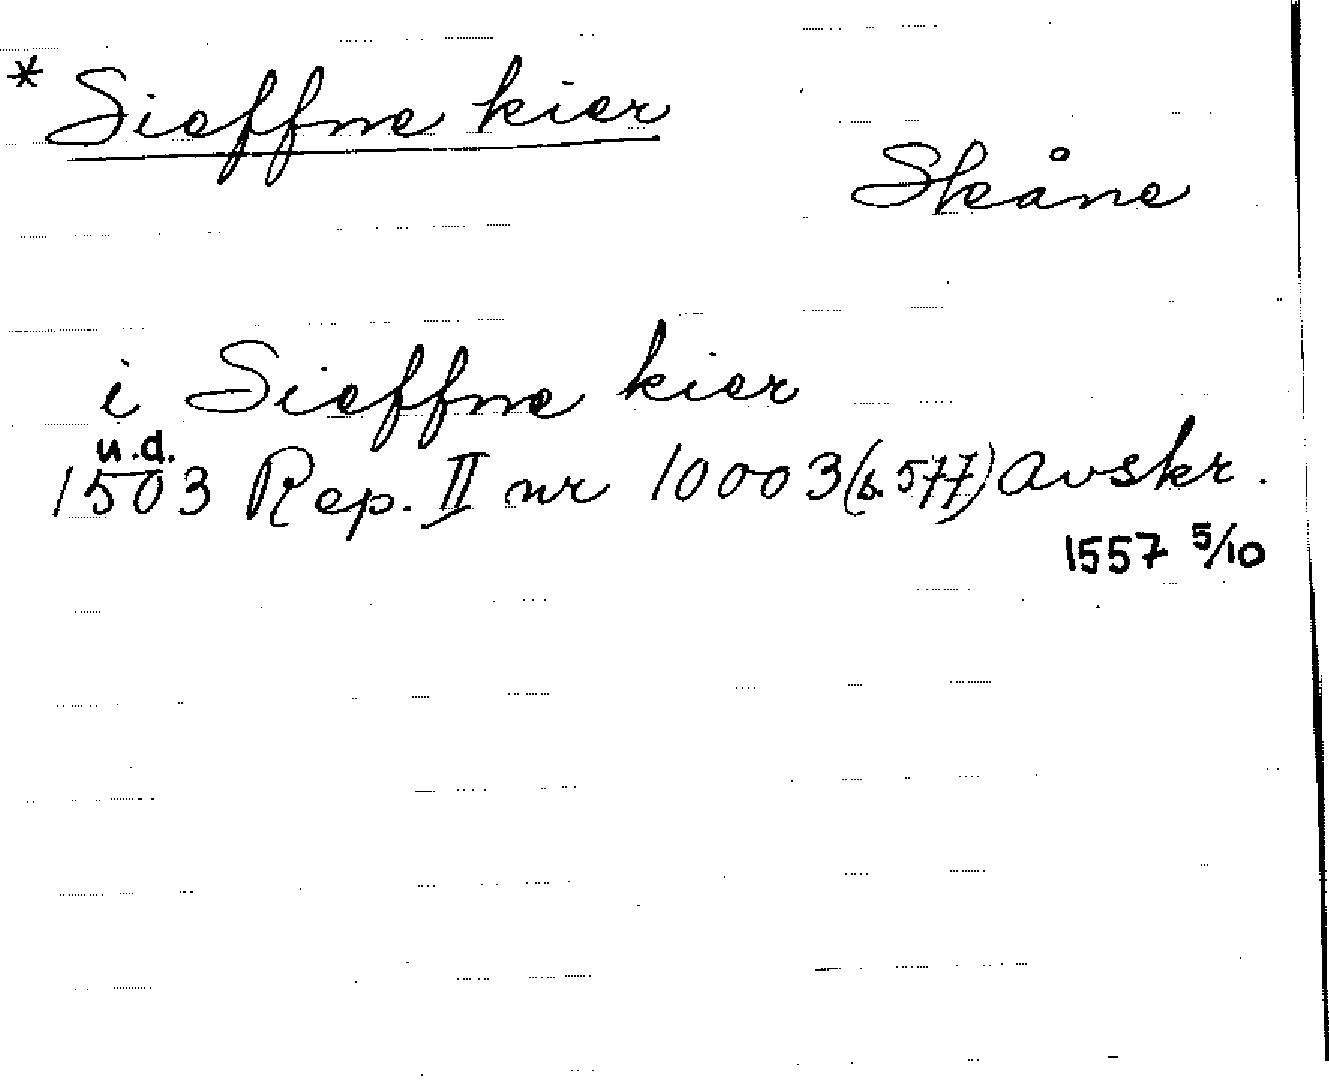 * Sieffne kier
Skåne
i Sieffne kier
u.d.
1503 Rep. II nr 10003 (s. 577) avskr.
1557 5/10